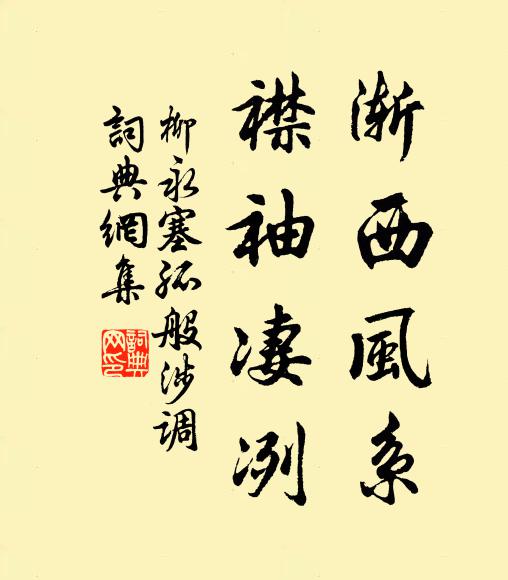 漸西風系
襟袖凄冽
柳永塞孤般涉調
詞典網集
詞典
网印